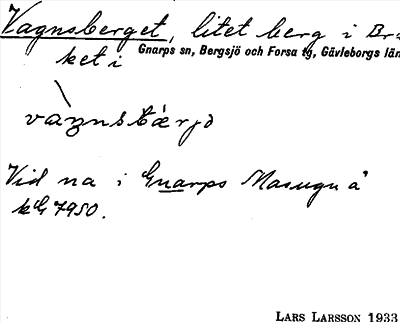 Vagnsberget, litet berg i Bra
ket i
Gnarps sn, Bergsjö och Forsa tg, Gävleborgs län
Vid na i Gnarps Masugn å
7950.
LARS LARSSON 1933